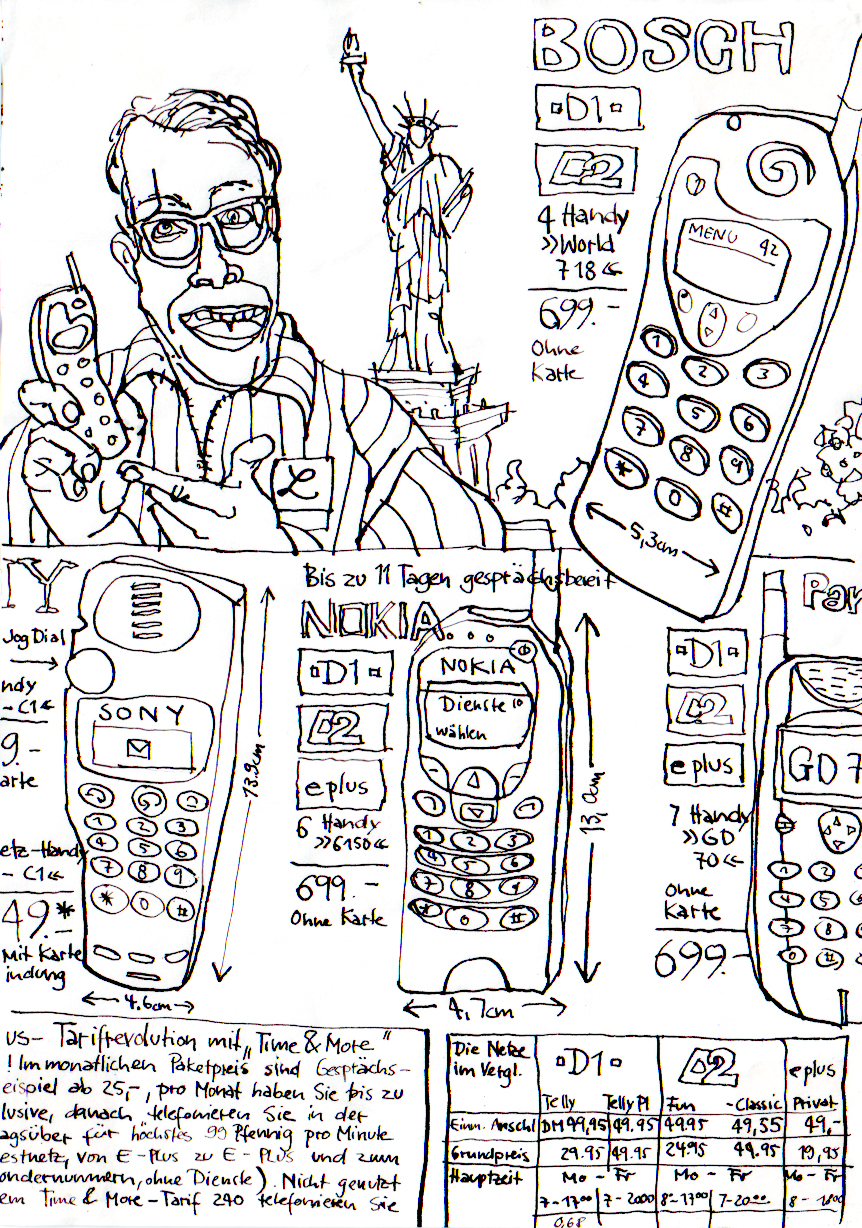 BOSCH
D1
D2
4 Handy
»World
718«
699.-
Ohne
Karte
MENU 42
1 2 3
4 5 6
7 8 9
* 0 #
5,3cm
L
Y
Jog Dial
ndy
- C1«
9.-
arte
etz-Handy
- C1«
49.-*
Mit Karte
indung
SONY
1 2 3
4 5 6
7 8 9
* 0 #
13.9cm
4.6cm
Bis zu 11 Tagen gesprächsbereit
NOKIA...
D1
D2
eplus
6 Handy
»6150«
699.-
Ohne Karte
NOKIA
Dienste
wählen
1 2 3
4 5 6
7 8 9
* 0 #
13,0cm
4,7cm
Pan
D1
D2
eplus
7 Handy
»GD
70«
Ohne
Karte
699.-
GD 7
1 2
4 5
7 8
0 #
us- Tarifrevolution mit „Time & More"
! Im monatlichen Paketpreis sind Gesprächs-
eispiel ab 25,-, pro Monat haben Sie bis zu
lusive, danach telefonieren Sie in der
agsüber für höchstes 99 Pfennig pro Minute
estnetz, von E-Plus zu E-Plus und zum
ondernummern, ohne Dienste). Nicht genutzt
em Time & More-Tarif 240 telefonieren Sie
Die Netze
im Vergl.
D1 D2 eplus
Telly Telly Pl Fun -Classic Privat
Einm. Anschl DM 49,95 49.95 49.95 49,55 49,-
Grundpreis 29.95 49.95 24.95 49.95 19,95
Hauptzeit Mo - Fr Mo - Fr Mo - Fr
7-17°° 7-20°° 8-17°° 7-20°° 8-18°°
0,68